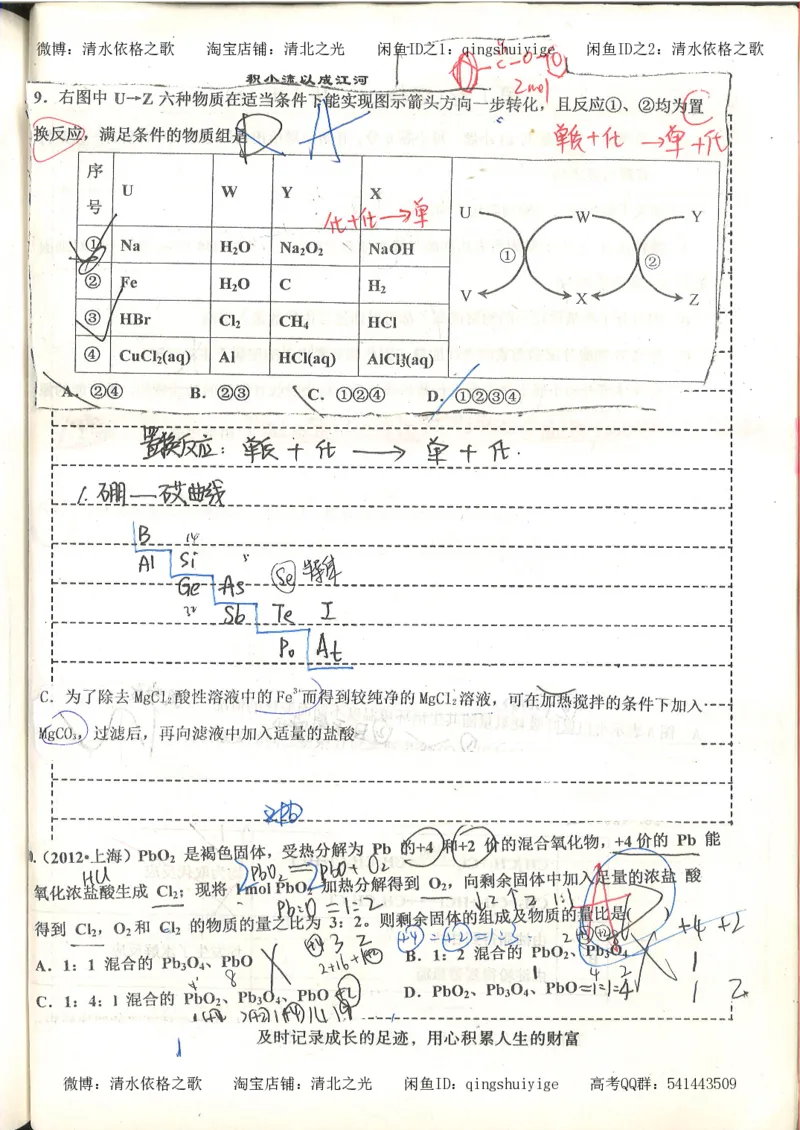 微博：清水依格之歌 淘宝店铺：清北之光 闲鱼ID之1：qingshuiyige 闲鱼ID之2：清水依格之歌
C-O-O
2mol
积小流以成江河
9．右图中 U→Z 六种物质在适当条件下能实现图示箭头方向一步转化，且反应①、②均为置
换反应，满足条件的物质组是
A
单质+化→单+化
序号 U W Y X
化+化→单
① Na H₂O Na₂O₂ NaOH
② Fe H₂O C H₂
③ HBr Cl₂ CH₄ HCl
④ CuCl₂(aq) Al HCl(aq) AlCl₃(aq)
U W Y
① ②
V X Z
A．②④ B．②③ C．①②④ D．①②③④
置换反应：单质 + 化 → 单 + 化.
1. 硼—砹曲线
B 14
Al Si
Ge As Se
32 Sb Te I
Po At
C．为了除去 MgCl₂ 酸性溶液中的 Fe³⁺ 而得到较纯净的 MgCl₂ 溶液，可在加热搅拌的条件下加入
MgCO₃，过滤后，再向滤液中加入适量的盐酸
0.（2012•上海）PbO₂ 是褐色固体，受热分解为 Pb 的+4 和+2 价的混合氧化物，+4 价的 Pb 能
PbO₂ = PbO + O₂
氧化浓盐酸生成 Cl₂；现将 1mol PbO₂ 加热分解得到 O₂，向剩余固体中加入足量的浓盐 酸
Pb:O = 1:2
1:2 1:1
得到 Cl₂，O₂和 Cl₂ 的物质的量之比为 3：2。则剩余固体的组成及物质的量比是( )
+4 +2
3 2
+4 = +2 = 1:3
A．1：1 混合的 Pb₃O₄、PbO B．1：2 混合的 PbO₂、Pb₃O₄
8 2+16+
4 2
1
C．1：4：1 混合的 PbO₂、Pb₃O₄、PbO D．PbO₂、Pb₃O₄、PbO =1:1:4
1 2
及时记录成长的足迹，用心积累人生的财富
微博：清水依格之歌 淘宝店铺：清北之光 闲鱼ID：qingshuiyige 高考QQ群：541443509